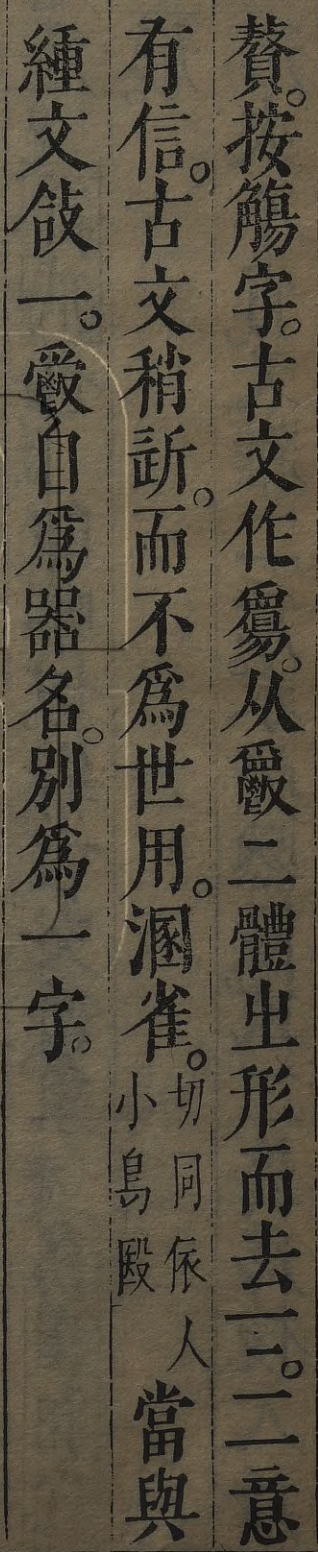 贅。按觴字。古文作𥏻。从爵二體㞢形而去一二。二意
有信。古文稍訢。而不爲世用。溷雀。切同依人小鳥殹當與
緟文敆一。爵自爲器名。別爲一字。